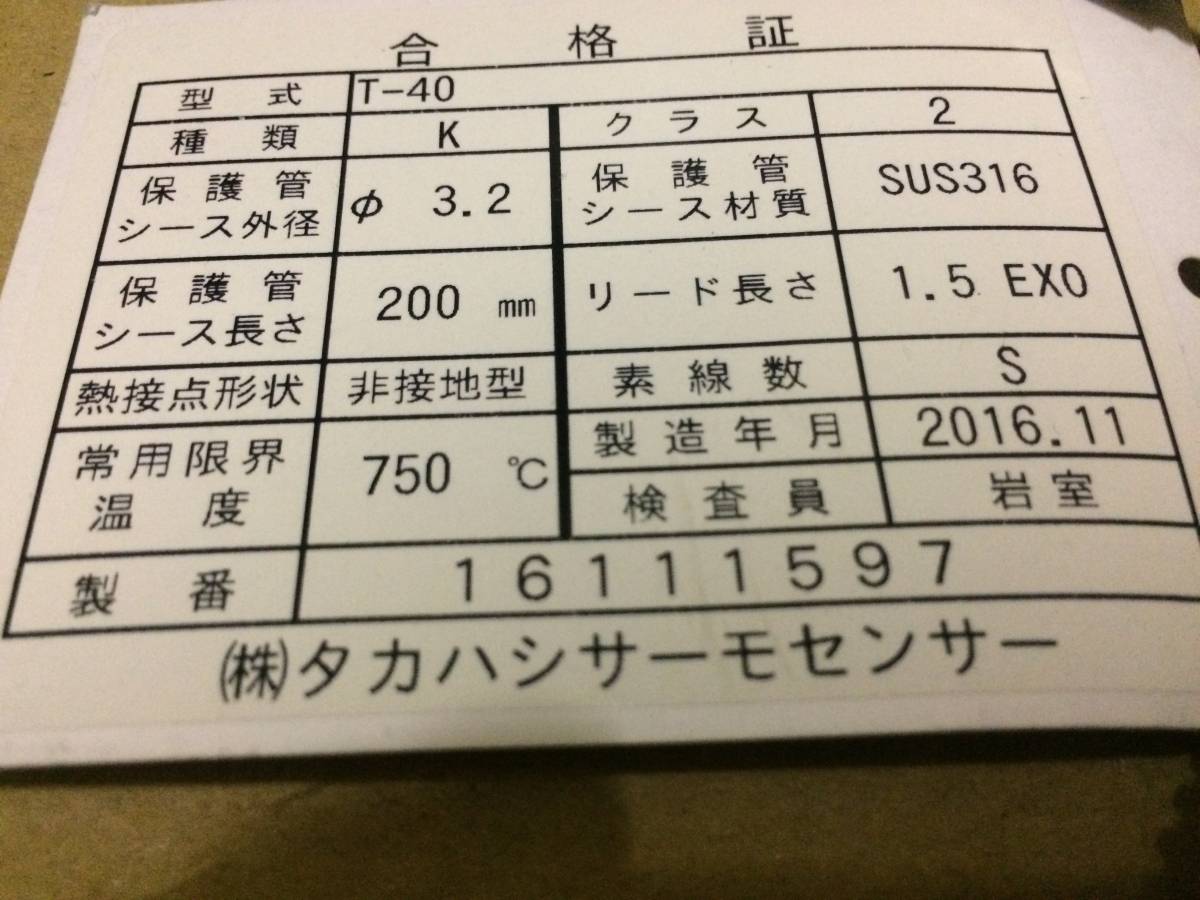 合格証
型式 T-40
種類 K クラス 2
保護管 シース外径 φ 3.2 保護管 シース材質 SUS316
保護管 シース長さ 200 mm リード長さ 1.5 EXO
熱接点形状 非接地型 素線数 S
常用限界 温度 750 ℃ 製造年月 2016.11
検査員 岩室
製番 16111597
㈱タカハシサーモセンサー